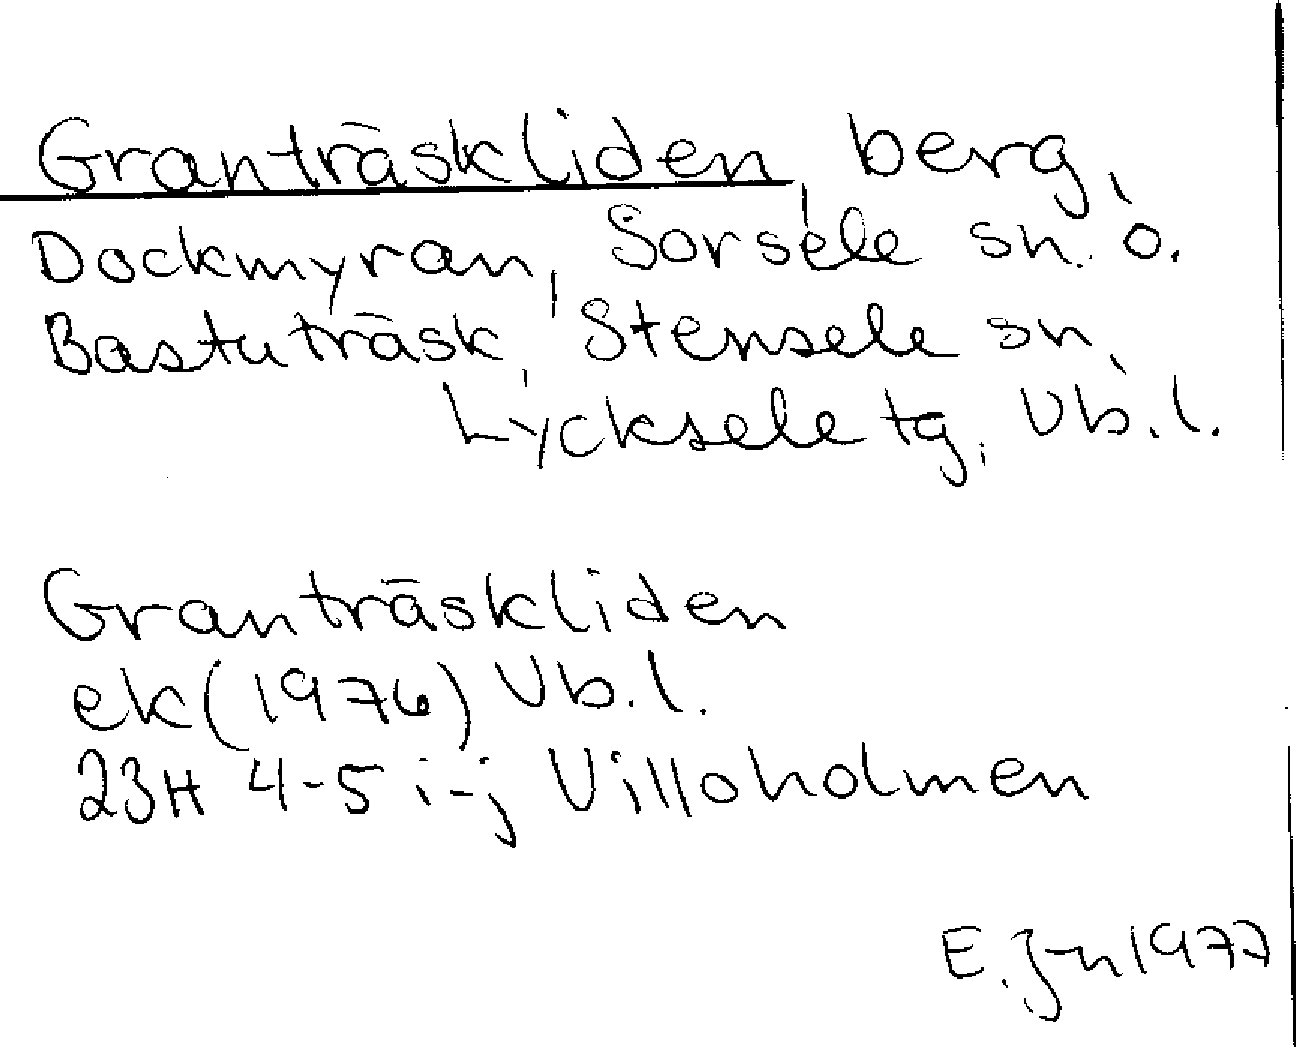 Granträskliden, berg,
Dockmyran, Sorsele sn. o.
Bastuträsk, Stensele sn,
Lycksele tg, Vb.l.
Granträskliden
ek (1976) Vb.l.
23H 4-5 i-j Villoholmen
E. J-n 1977